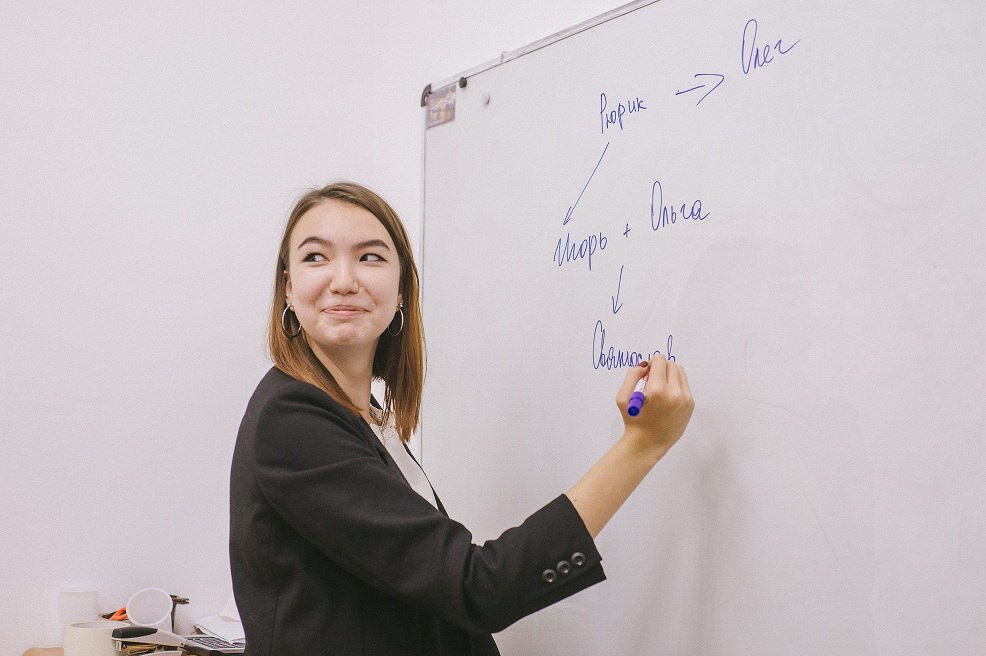 Рюрик → Олег
Игорь + Ольга
Святослав